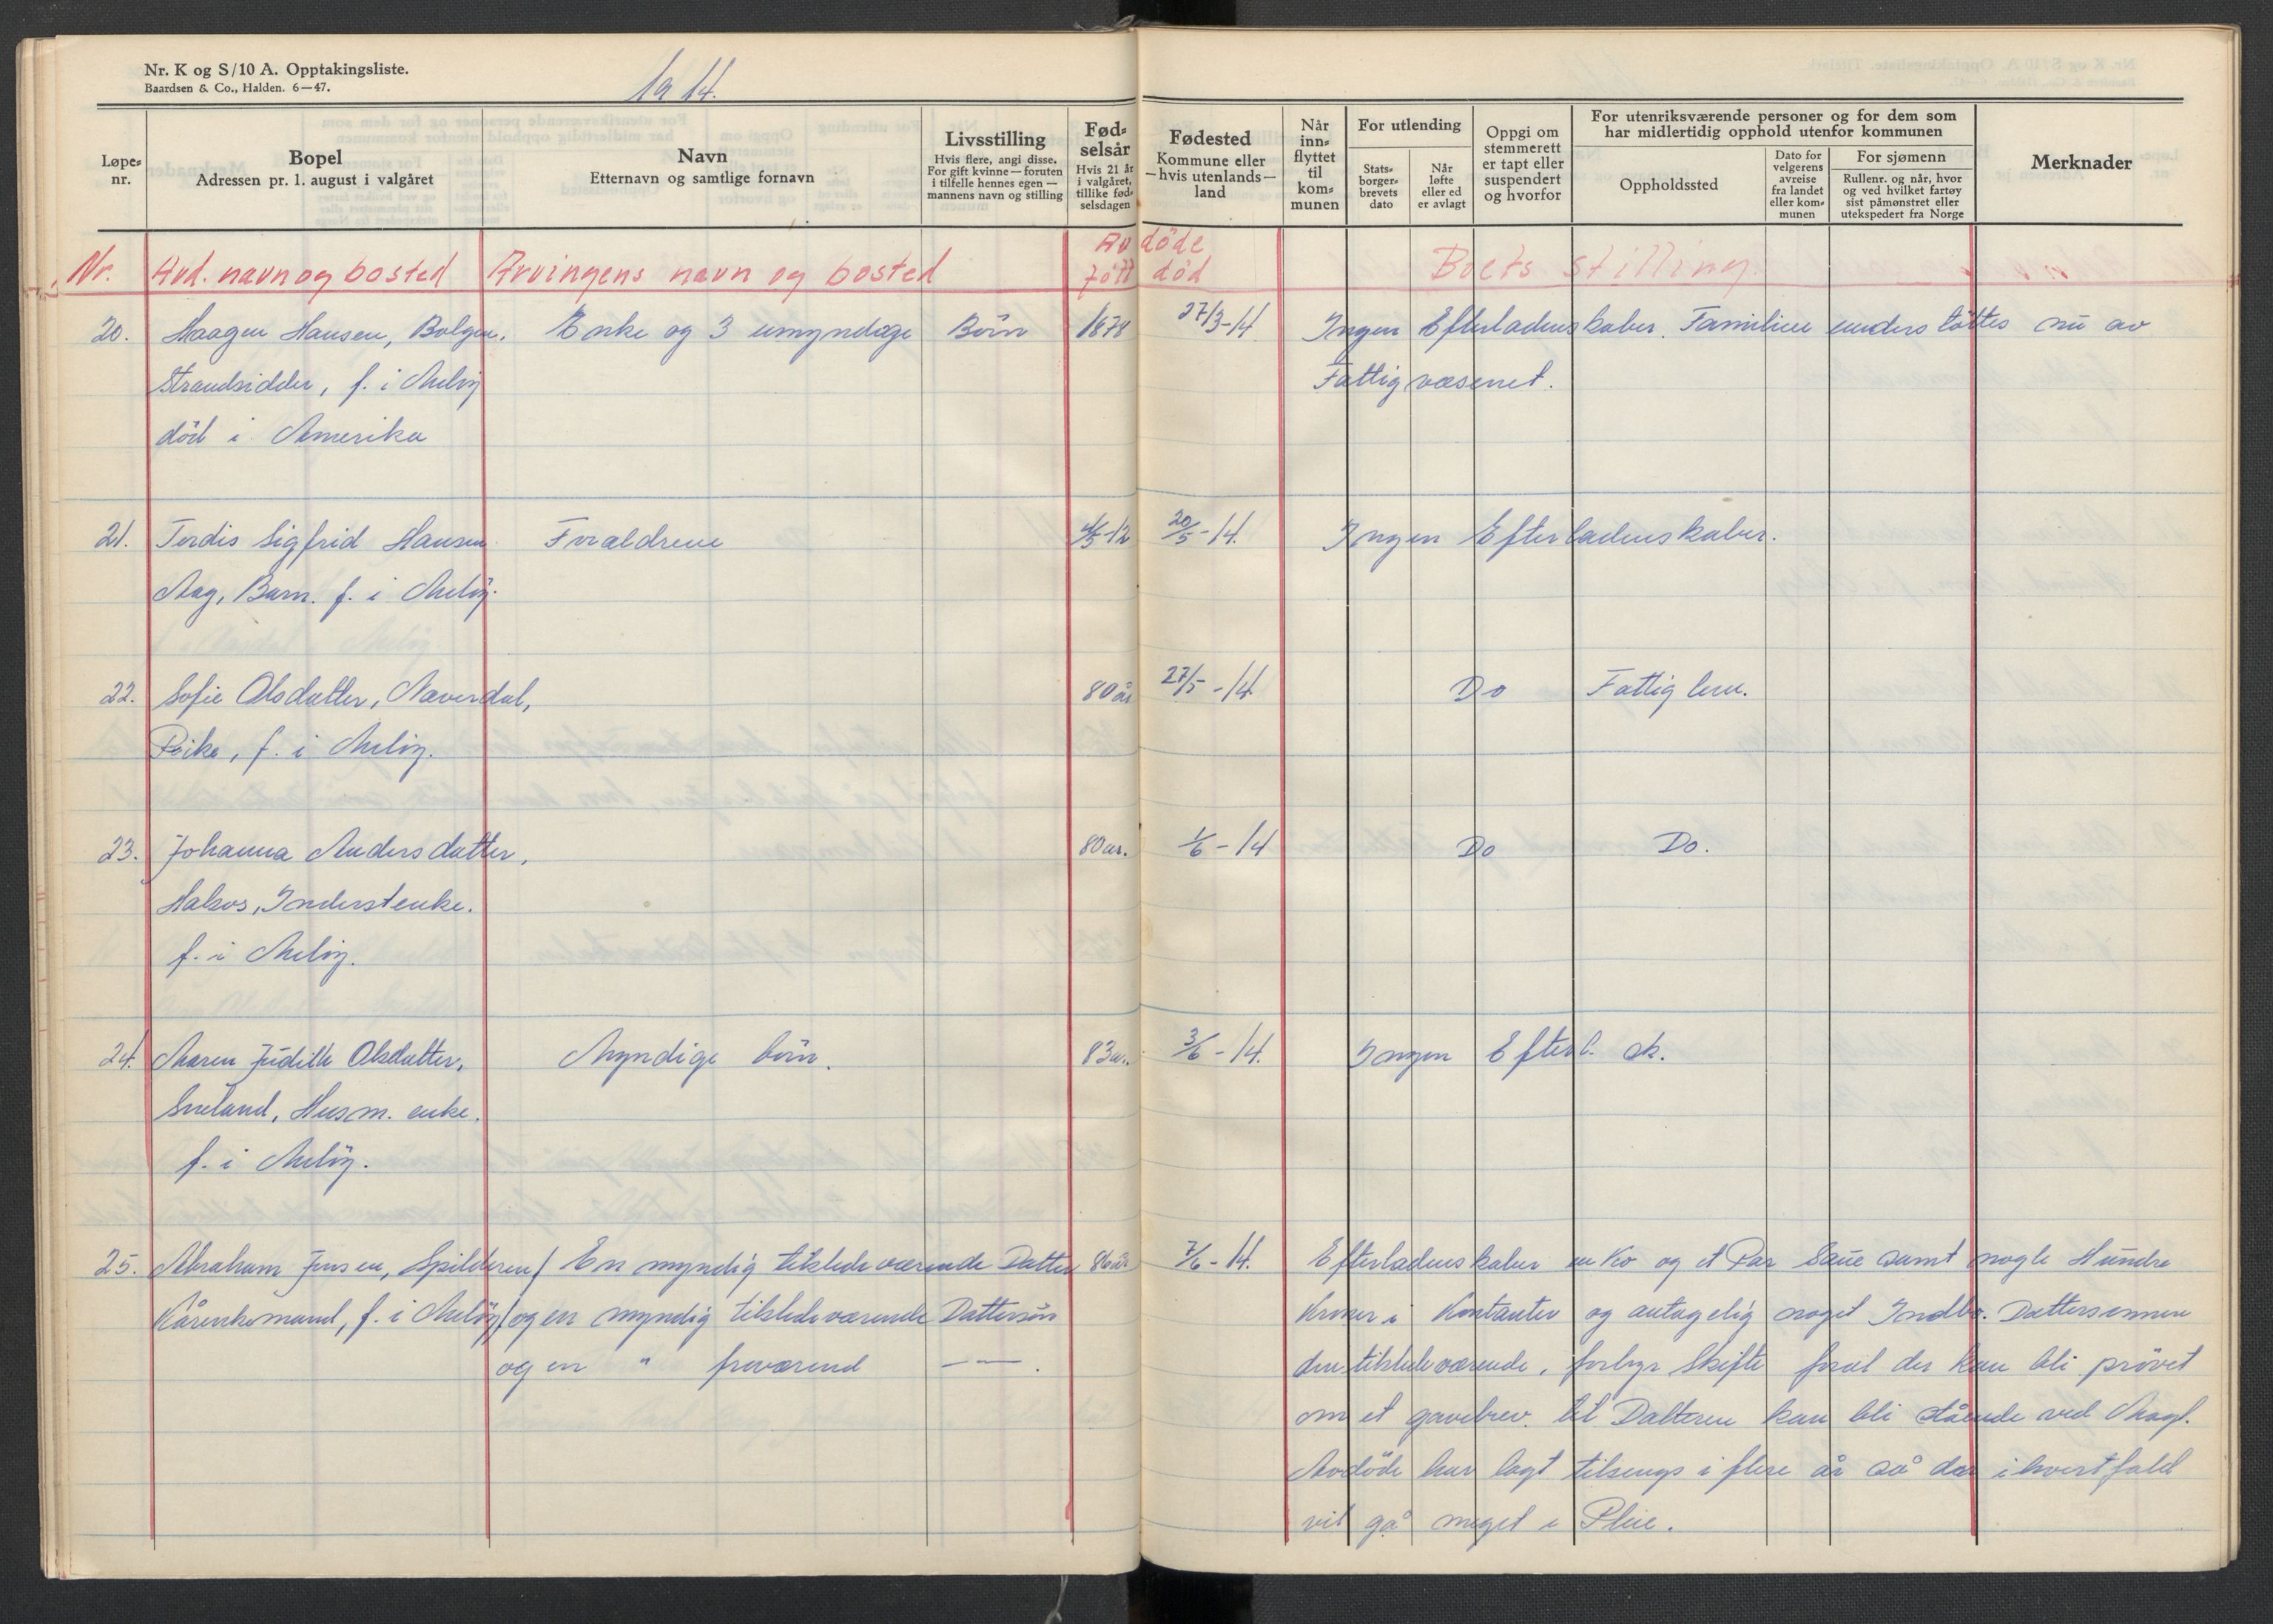 Nr. K og S/10 A. Opptakingsliste.
Baardsen & Co., Halden. 6—47.
1914.
Løpe-nr.
Bopel
Adressen pr. 1. august i valgåret
Navn
Etternavn og samtlige fornavn
Livsstilling
Hvis flere, angi disse.
For gift kvinne — foruten
i tilfelle hennes egen —
mannens navn og stilling
Fød-selsår
Hvis 21 år
i valgåret,
tillike fød-
selsdagen
Fødested
Kommune eller
— hvis utenlands —
land
Når
inn-
flyttet
til
kom-
munen
For utlending
Stats-
borger-
brevets
dato
Når
løfte
eller ed
er avlagt
Oppgi om
stemmerett
er tapt eller
suspendert
og hvorfor
For utenriksværende personer og for dem som
har midlertidig opphold utenfor kommunen
Oppholdssted
Dato for
velgerens
avreise
fra landet
eller kom-
munen
For sjømenn
Rullenr. og når, hvor
og ved hvilket fartøy
sist påmønstret eller
utekspedert fra Norge
Merknader
Avdöde
Nr. Avd. navn og bosted Arvingens navn og bosted födt död Boets stilling
20. Haagen Hansen, Bolgen, Enke og 3 umyndige Börn 1878 27/3-14 Ingen Efterladenskaber. Familien understöttes nu av
Strandsidder, f. i Melöy Fattigvæsenet.
död i Amerika
21. Tordis Sigfrid Hansen Forældrene 4/5-12 20/5-14. Ingen Efterladenskaber.
Aag, Barn. f. i Melöy.
22. Sofie Olsdatter, Næverdal, 80 år 27/5-14 Do Fattiglem.
Pike, f. i Melöy.
23. Johanna Andersdatter, 80 år. 1/6-14 Do Do.
Halsos, Inderstenke.
f. i Melöy.
24. Maren Judith Olsdatter, Myndige börn. 83 år. 3/6-14. Ingen Efterl. sk.
Sneland, Husm. enke.
f. i Melöy.
25. Abraham Jensen, Spilderen En myndig tilstedeværende Datter 86 år 7/6-14. Efterladenskaber en Ko og et Par Saue samt nogle Hundre
Kårenkemand, f. i Melöy og en myndig tilstedeværende Dattersön Kroner i Kontanter og antagelig noget Indbo. Dattersønnen
og en " fraværend — — . den tilstedeværende, forlngr Skifte forat der kan bli prövet
om et gavebrev til Datteren kan bli stående ved Magt.
Avdöde har lagt tilsengs i flere år så der i hvert fald
vil gå meget i Pleie.